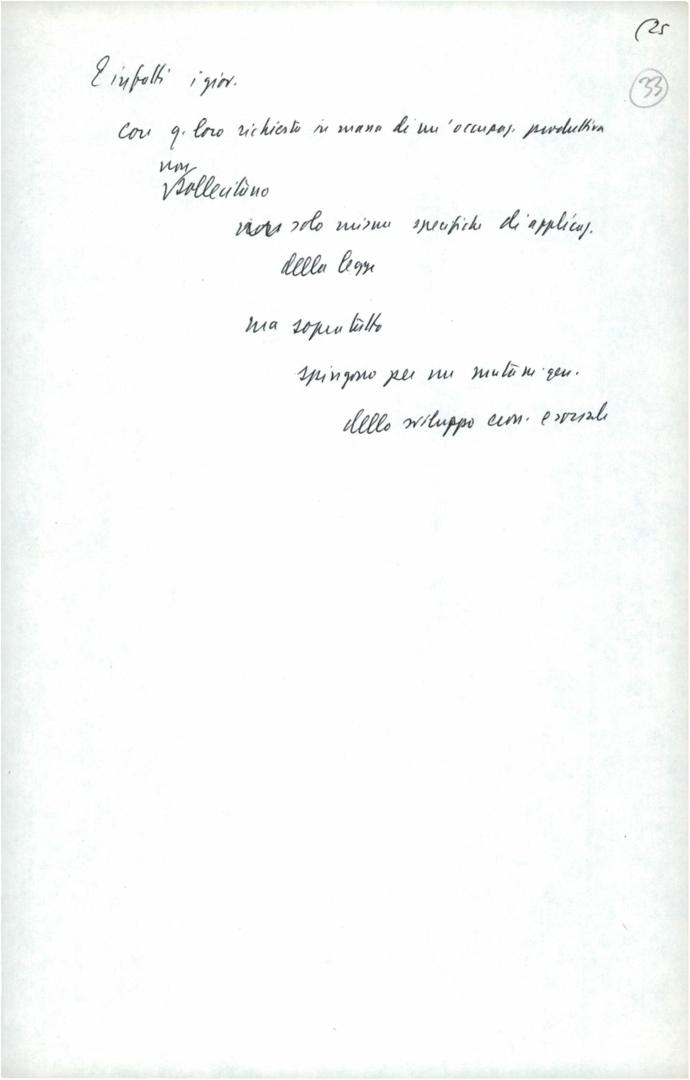 (25
33
E infatti i giov.
con q. loro richiesta in massa di un'occupaz. produttiva
non
sollecitano
non solo misure specifiche di applicaz.
della legge
ma sopratutto
spingono per un mutam. gen.
dello sviluppo econ. e sociale